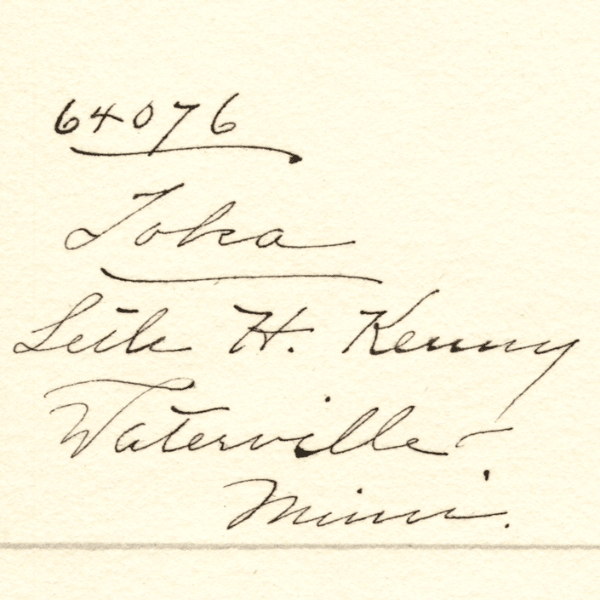 64076
Toka
H. Kenny
Waterville
Minn.